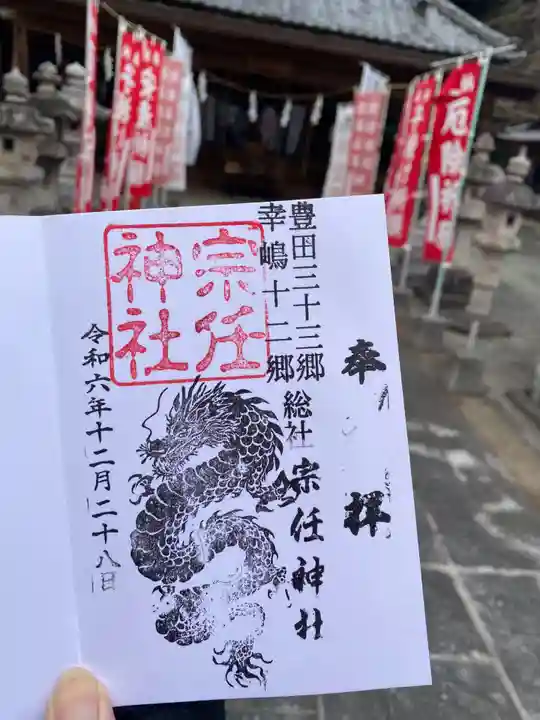 奉拝
豊田三十三郷
幸嶋十二郷
総社
宗任神社
宗任
神社
令和六年十二月二十八日